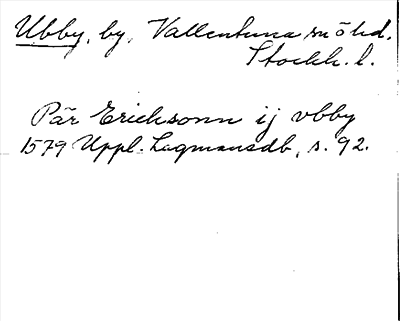 Ubby, by, Vallentuna sn ö hd.
Stockh. l.
Pär Erichsonn ij vbby
1579 Uppl. Lagmansdb, s. 92.